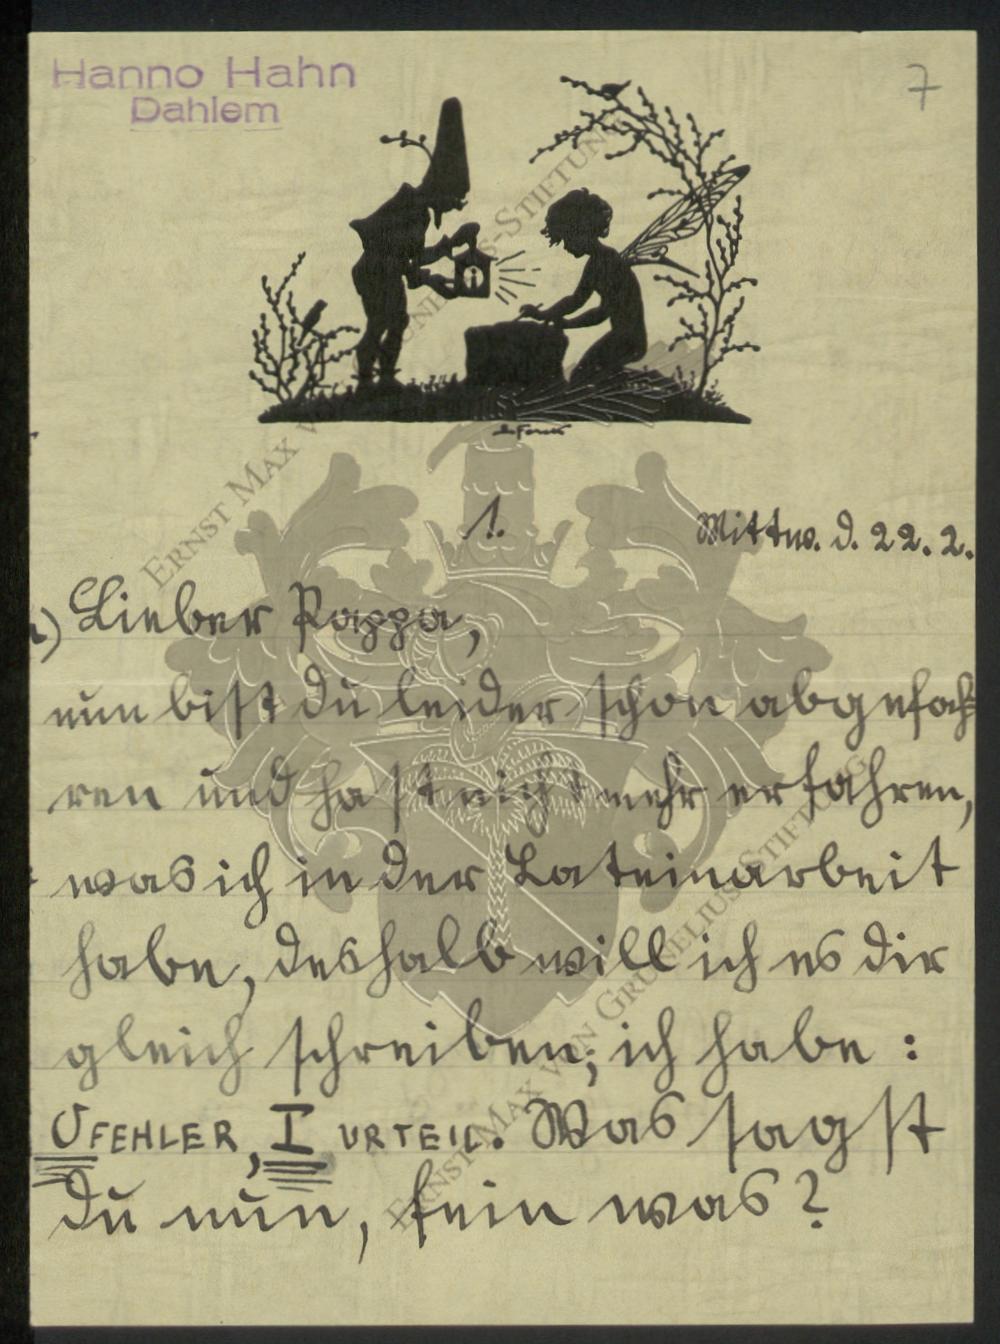 Hanno Hahn
Dahlem
7
1.
Mittw. d. 22. 2.
Lieber Pappa,
nun bist du leider schon abgefah
ren und hast nicht mehr erfahren,
was ich in der Lateinarbeit
habe, deshalb will ich es dir
gleich schreiben; ich habe :
0 FEHLER, I URTEIL. Was sagst
du nun, fein was?
ERNST MAX VON GRUNELIUS-STIFTUNG
ERNST MAX VON GRUNELIUS-STIFTUNG